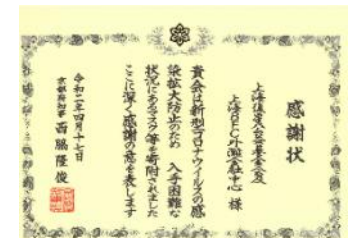 感謝状
上海復星公益基金会及
上海BFC外灘金融中心 様
貴会は新型コロナウイルスの感
染拡大防止のため 入手困難な
状況にあるマスク等を寄附されました
ここに深く感謝の意を表します
令和二年四月十七日
京都府知事 西脇隆俊